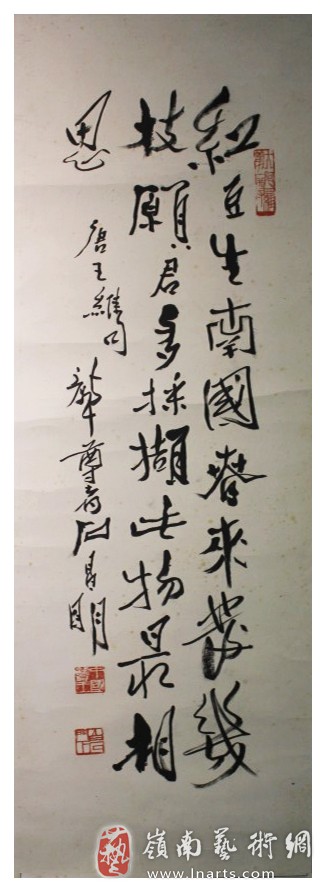 紅豆生南國春來發幾
枝願君多採擷此物最相
思
唐王維句
嶺南藝術網
www.lnarts.com